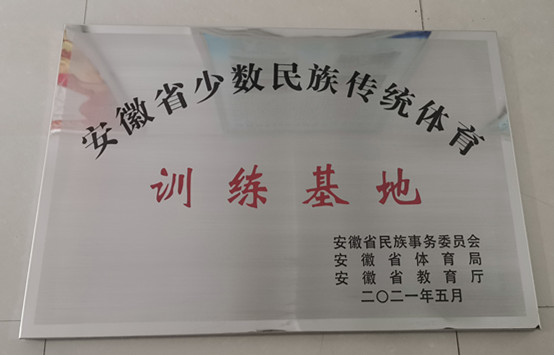 安徽省少数民族传统体育
训练基地
安徽省民族事务委员会
安徽省体育局
安徽省教育厅
二〇二一年五月